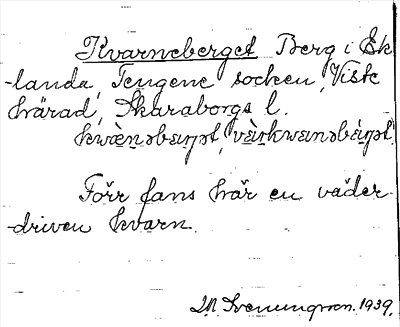 Kvarneberget Berg i Ek
-landa, Tengene socken, Viste
härad, Skaraborgs l.
Förr fans här en väder-
driven kvarn.
Svenungsson. 1939.